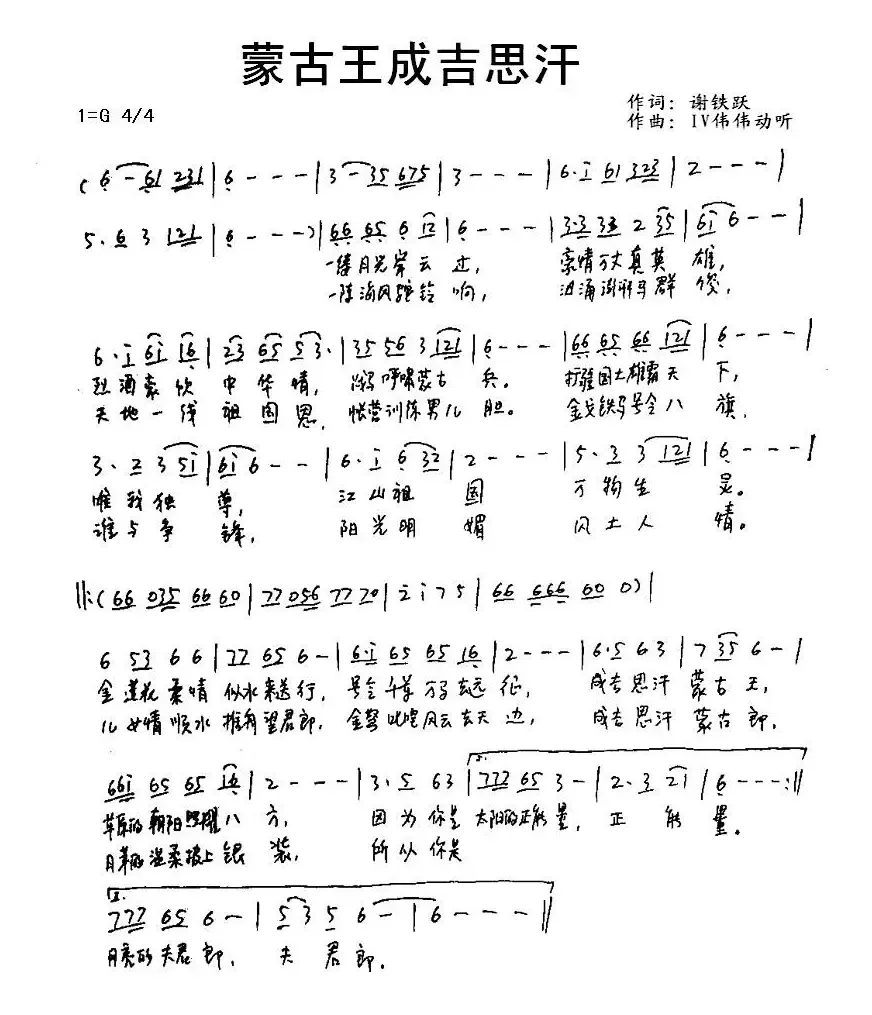 蒙古王成吉思汗
1=G 4/4
作词：谢铁跃
作曲：IV伟伟动听
(6 - 61 231 | 6 - - - | 3 - 35 675 | 3 - - - | 6·i 61 323 | 2 - - - |
5·6 3 121 | 6 - - -) | 66 65 6 12 | 6 - - - | 3·3 33 2 35 | 6i 6 - - |
一缕月光岸云过， 豪情万丈真英雄，
一阵海风驼铃响， 汹涌澎湃马群
6·i 6i 16 | 23 65 53· | 35 56 3 121 | 6 - - - | 66 65 66 121 | 6 - - - |
烈酒豪饮中华情， 呼啸蒙古兵。 打疆国土雄霸天下，
天地一线祖国恩， 帐营训练男儿胆。 金戈铁马号令八旗，
3·2 3 5i | 6i 6 - - | 6·i 6 32 | 2 - - - | 5·3 3 121 | 6 - - - |
唯我独尊， 江山祖国 万物生灵。
谁与争锋， 阳光明媚 风土人情。
‖:(66 035 66 60 | 77 056 77 70 | 2 i 7 5 | 66 666 60 0) |
6 53 6 6 | 77 65 6 - | 6·i 65 65 16 | 2 - - - | 6·5 6 3 | 7 35 6 - |
金莲花柔情似水来送行， 号令千军万马去远征， 成吉思汗蒙古王，
儿女情顺水推舟望君郎， 金弩叱咤风云去天边， 成吉思汗蒙古郎，
66i 65 65 16 | 2 - - - | 3·5 63 | 777 65 3 - | 2·3 2i | 6 - - - :‖
草原的朝阳照耀八方， 因为你是太阳的正能量， 正能量。
月革的温柔披上银装， 所以你是
777 65 6 - | 5 3 5 6 - | 6 - - - ‖
月亮的夫君郎， 夫君郎。